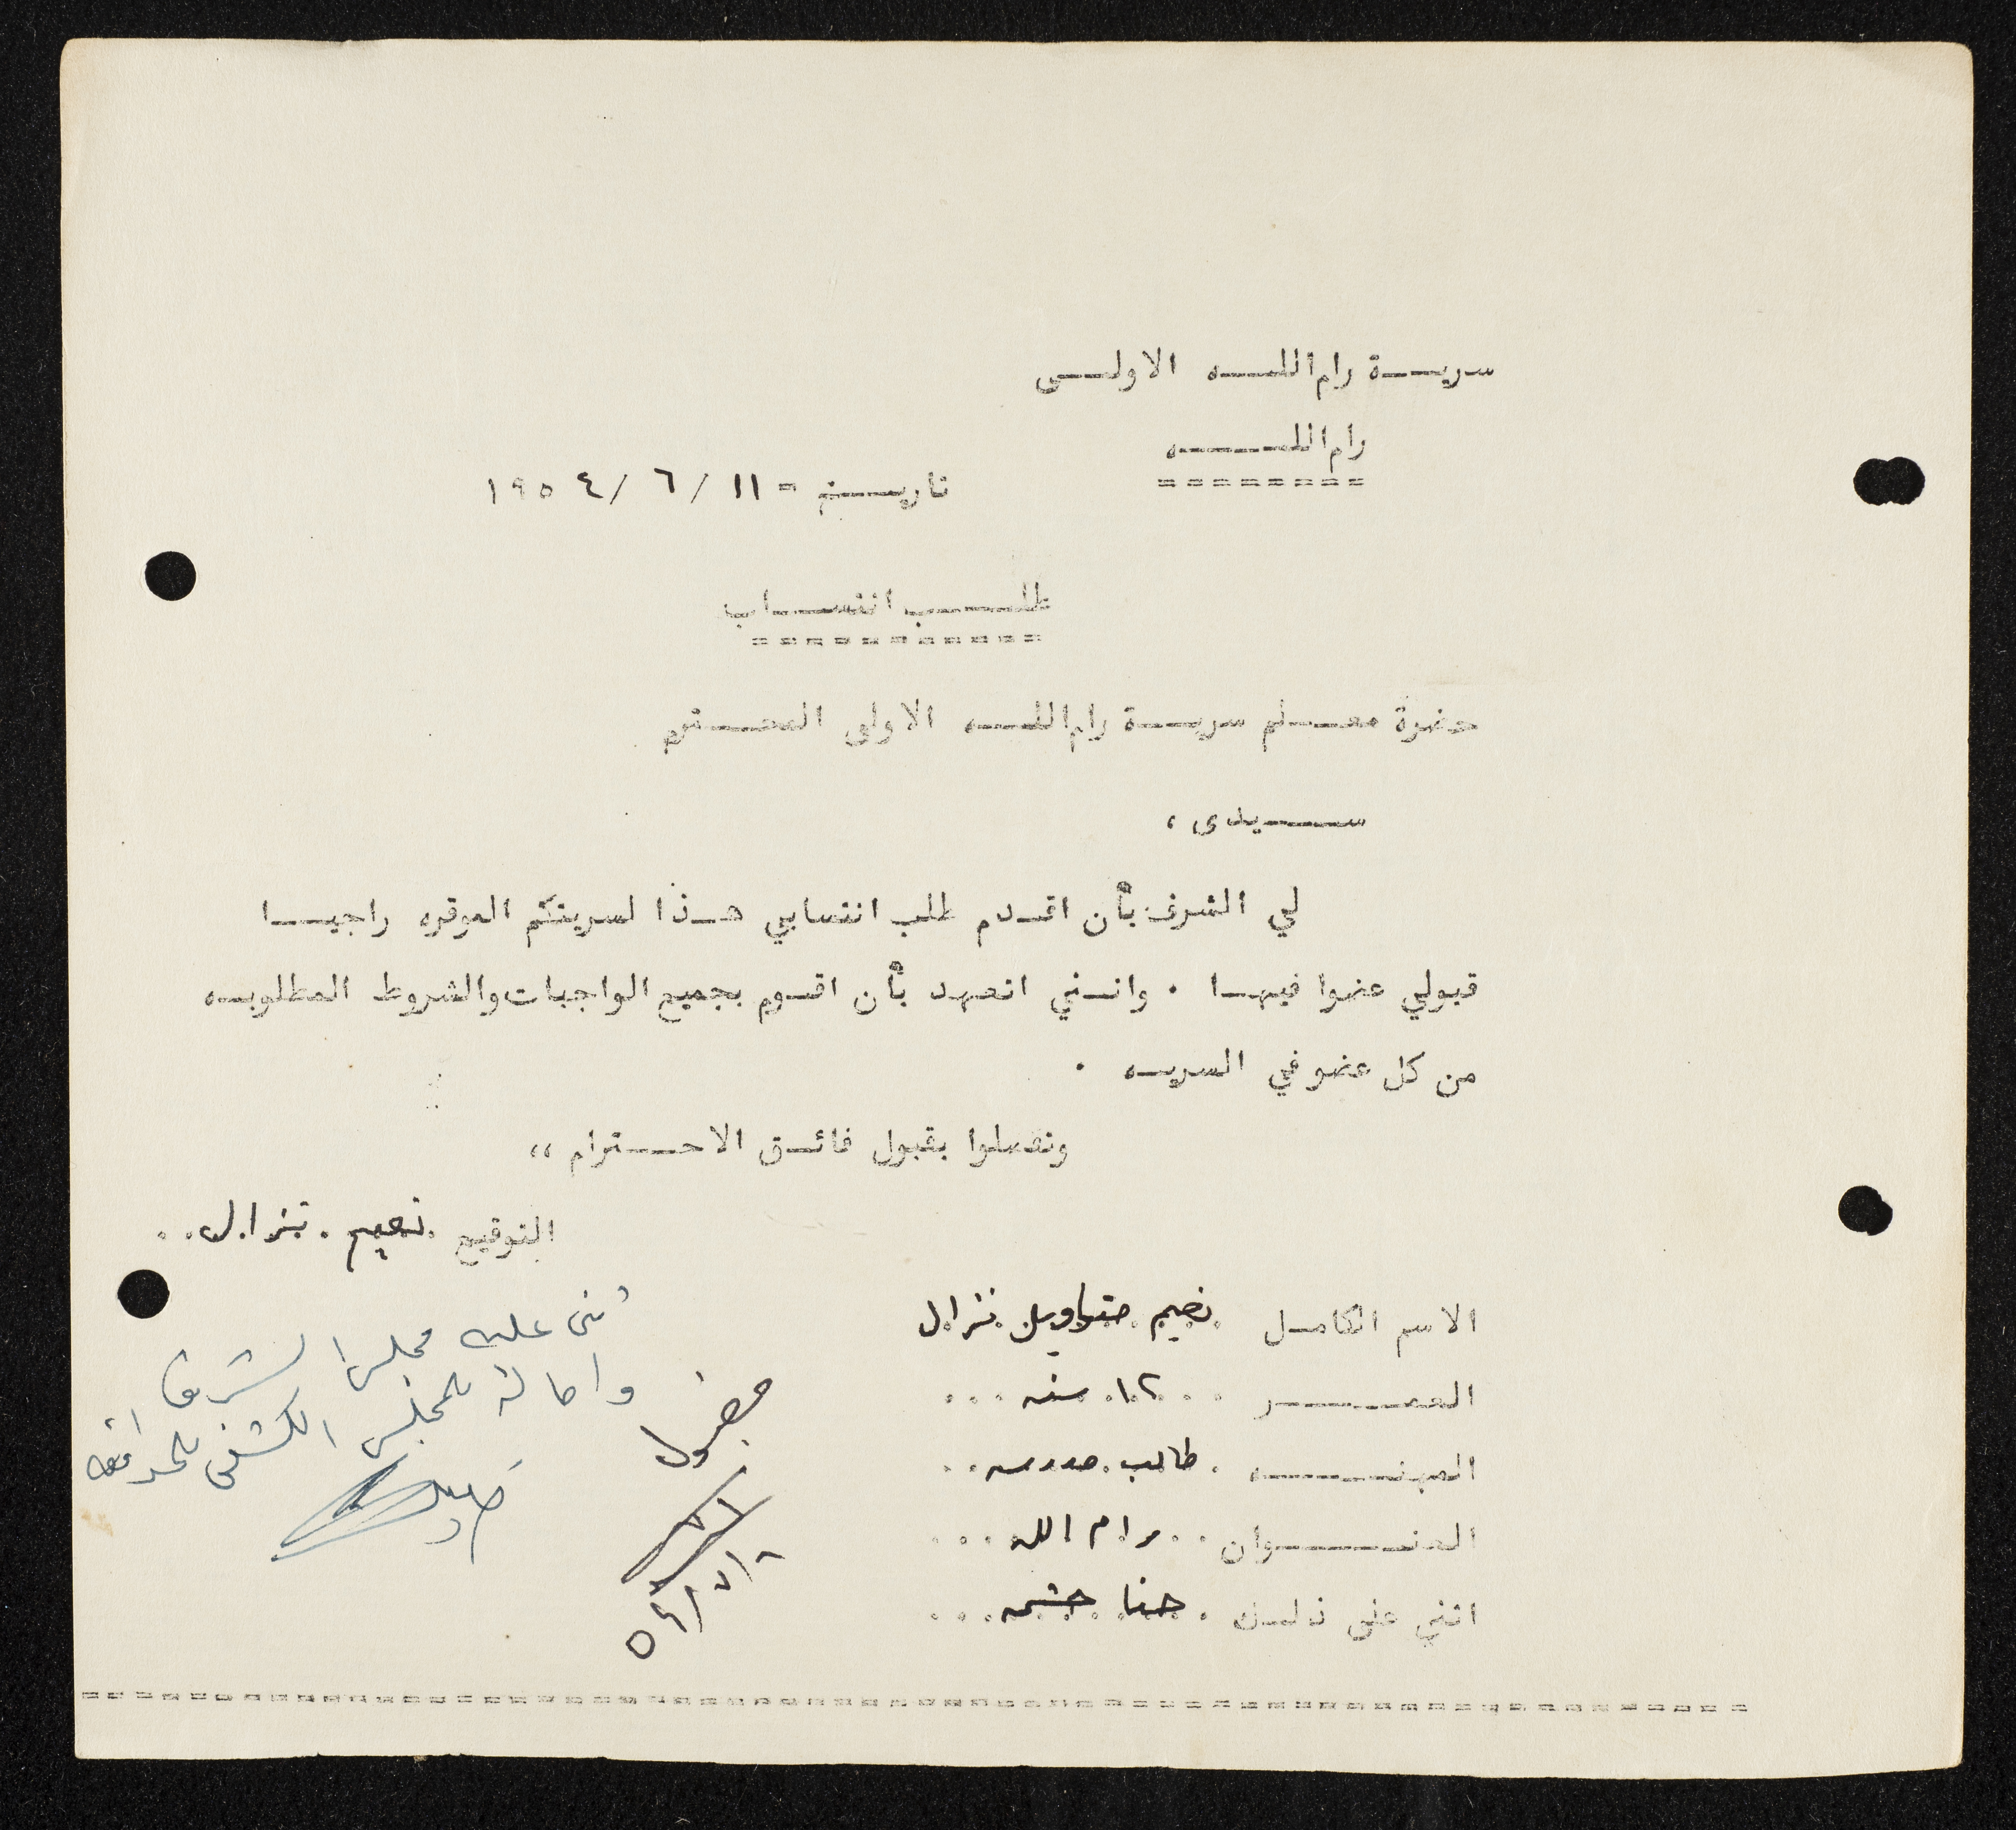 سرية رام الله الاولى
رام الله
========
تاريخ = ١١ / ٦ / ١٩٥٤
طلب انتساب
===========
حضرة معلم سرية رام الله الاولى المحترم
سيدى ،
لي الشرف بأن اقدم طلب انتسابي هذا لسريتكم الموقره راجيا
قبولي عضوا فيها . وانني اتعهد بأن اقوم بجميع الواجبات والشروط المطلوبه
من كل عضو في السريه .
وتفضلوا بقبول فائق الاحترام ،،
التوقيع نعيم نزال
الاسم الكامل نعيم متياويل نزال
العمر ١٢ سنه
المهنه طالب مدرسه
العنوان رام الله
اثني على ذلك حنا حشمه
مقبول
٦ / ٧ / ٥٤
اثنى عليه مجلس الشرف
واحاله للمجلس الكشفي للموافقه